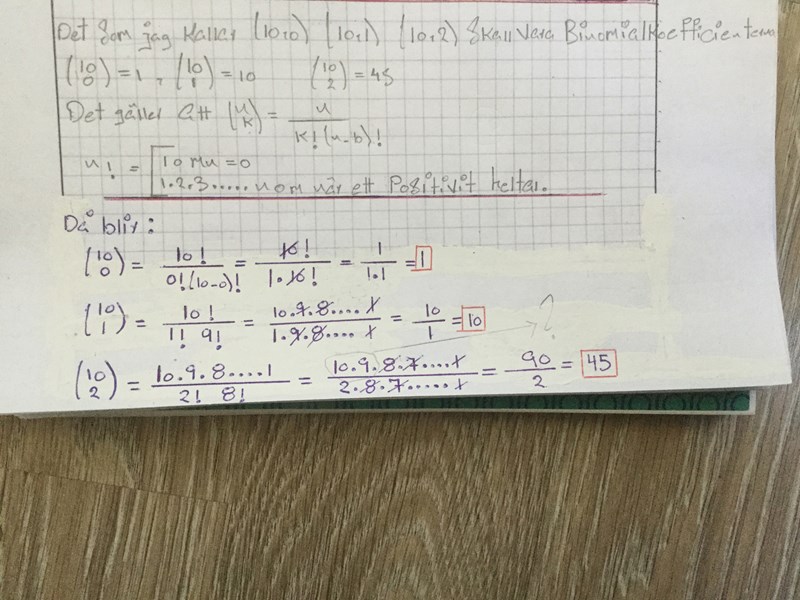 Det Som jag Kallar (10,0) (10,1) (10,2) Skall Vara Binomialkoefficienterna
(10 0) = 1 , (10 1) = 10 (10 2) = 45
Det gäller Att (n k) = n / k!(n-b)!
n! = [1 om n = 0
1.2.3..... n om när ett Positivit heltal.
Då blir:
(10 0) = 10! / 0!(10-0)! = 10! / 1.10! = 1 / 1.1 = 1
(10 1) = 10! / 1! 9! = 10.9.8.... 1 / 1.9.8.... 1 = 10 / 1 = 10 ?
(10 2) = 10.9.8....1 / 2! 8! = 10.9.8.7....1 / 2.8.7.....1 = 90 / 2 = 45